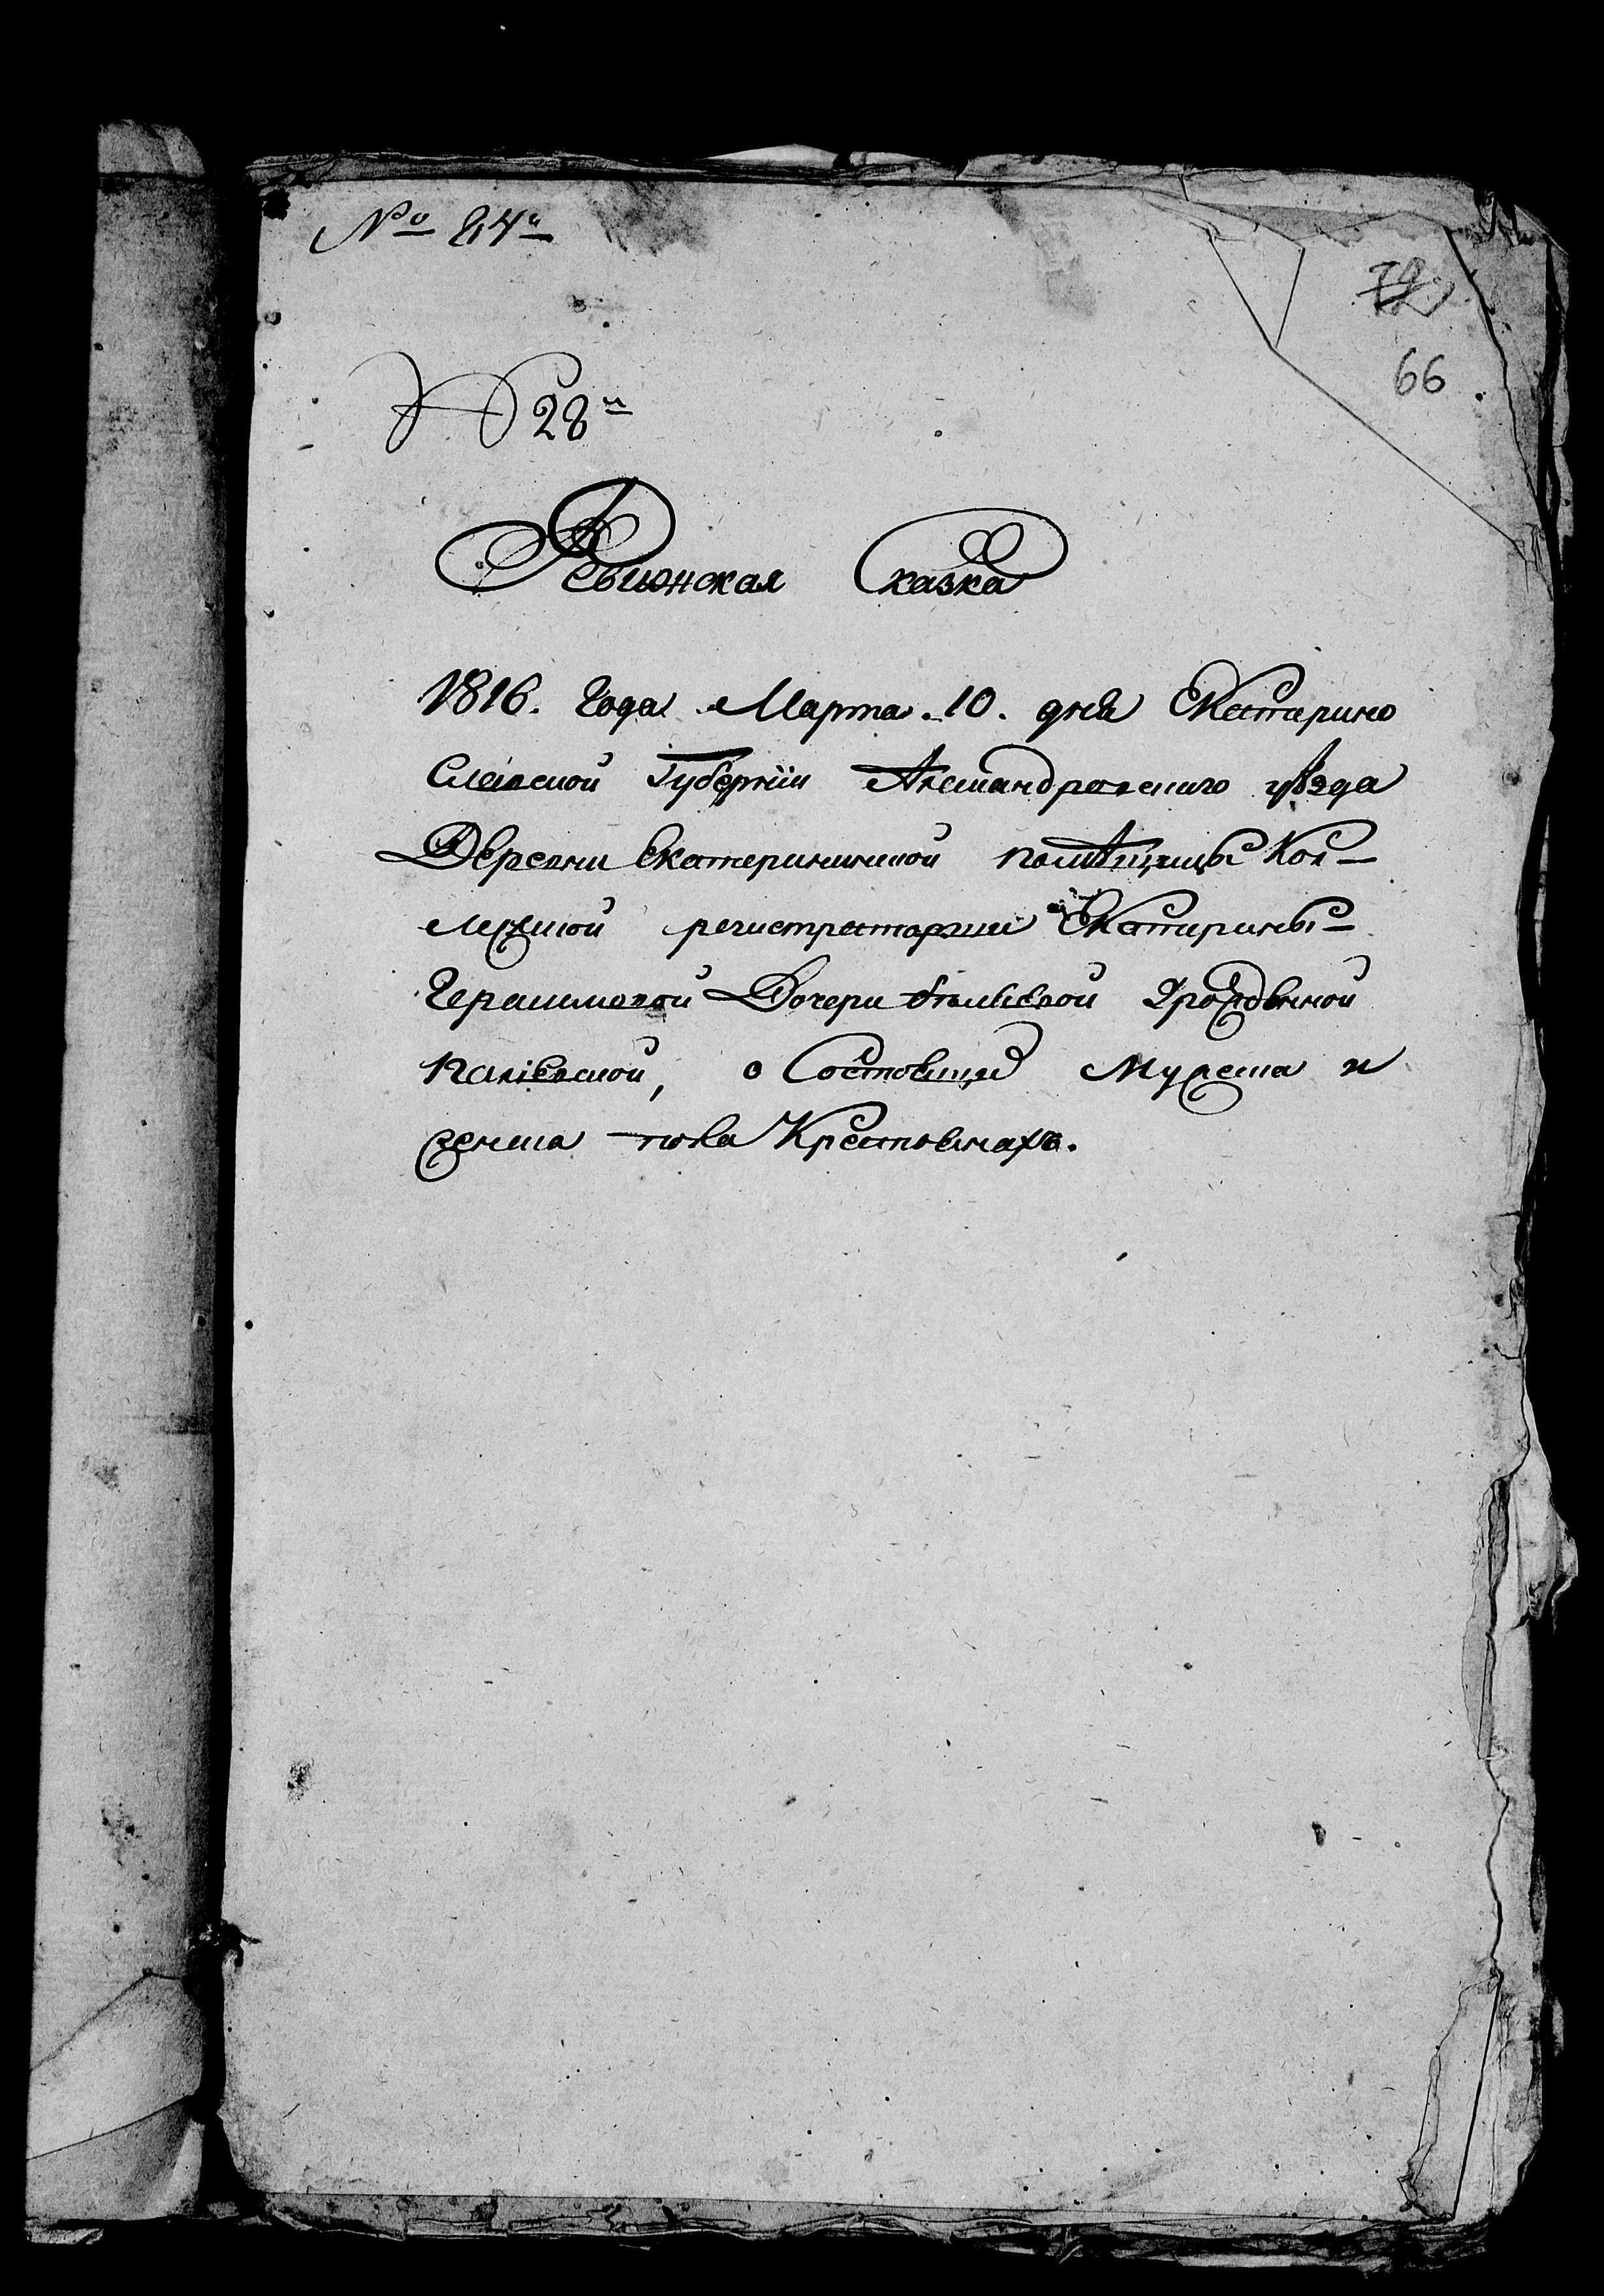 № 84й
72
66
№ 28й
Ревизская Сказка
1816. года Марта. 10. дня Екатерино
Славской Губернiи Александровского уѣзда
Деревни Екатерининской помѣщицы Кол-
лежской регистраторши Екатерины
Герасимовой Дочери
о Состоящих Мужеска и
женска пола Крестьянахъ.